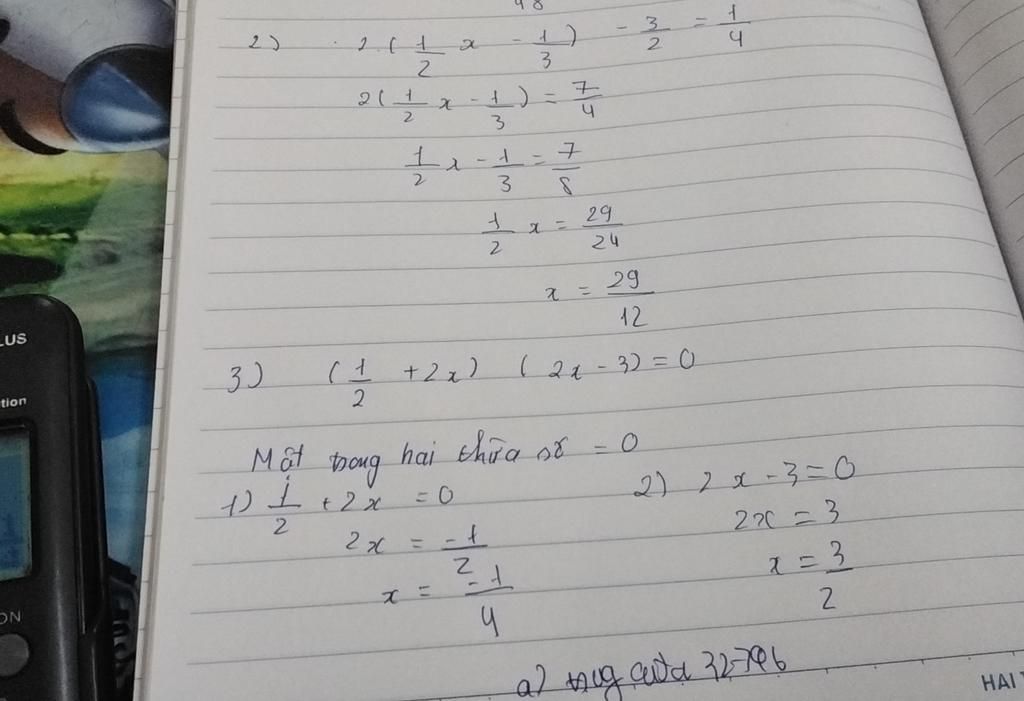 48
2) 2.(1/2 x - 1/3) - 3/2 = 1/4
2(1/2 x - 1/3) = 7/4
1/2 x - 1/3 = 7/8
1/2 x = 29/24
x = 29/12
3) (1/2 + 2x) (2x - 3) = 0
Một trong hai thừa số = 0
1) 1/2 + 2x = 0
2) 2x - 3 = 0
2x = -1/2
2x = 3
x = -1/4
x = 3/2
a)
HAI
LUS
tion
ON